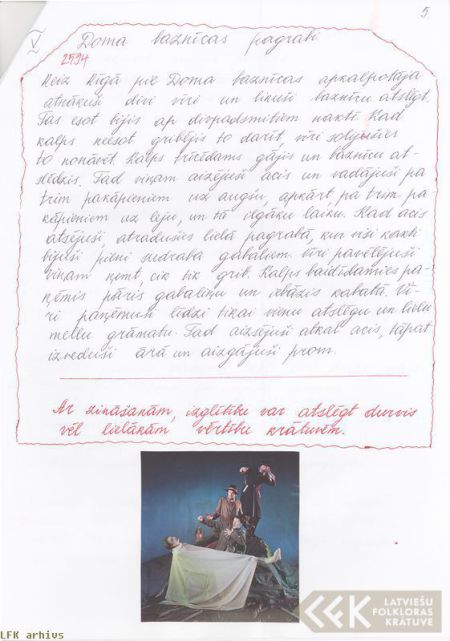 5
V Doma baznīcas pagrabi
2594
Reiz Rīgā pie Doma baznīcas apkalpotāja
atnākuši divi vīri un likuši baznīcu atslēgt.
Tas esot bijis ap divpadsmitiem naktī. Kad
kalps neesot gribējis to darīt, vīri solījušies
to nonāvēt. Kalps trīcēdams gājis un baznīcu at-
slēdzis. Tad viņam aizsējuši acis un vadājuši pa
trim pakāpieniem uz augšu, apkārt, pa trim pa-
kāpieniem uz leju, un tā ilgāku laiku. Kad acis
atsējuši, atradušies lielā pagrabā, kur visi kakti
bijuši pilni sudraba gabaliem. Vīri pavēlējuši
viņam ņemt, cik tik grib. Kalps baidīdamies pa-
ņēmis pāris gabaliņu un iebāzis kabatā. Vī-
ri paņēmuši līdzi tikai vienu atslēgu un lielu
mellu grāmatu. Tad aizsējuši atkal acis, tāpat
izveduši ārā un aizgājuši prom.
Ar zināšanām, izglītību var atslēgt durvis
vēl lielākām vērtību krātuvēm.
LATVIEŠU
FOLKLORAS
KRĀTUVE
LFK arhivs